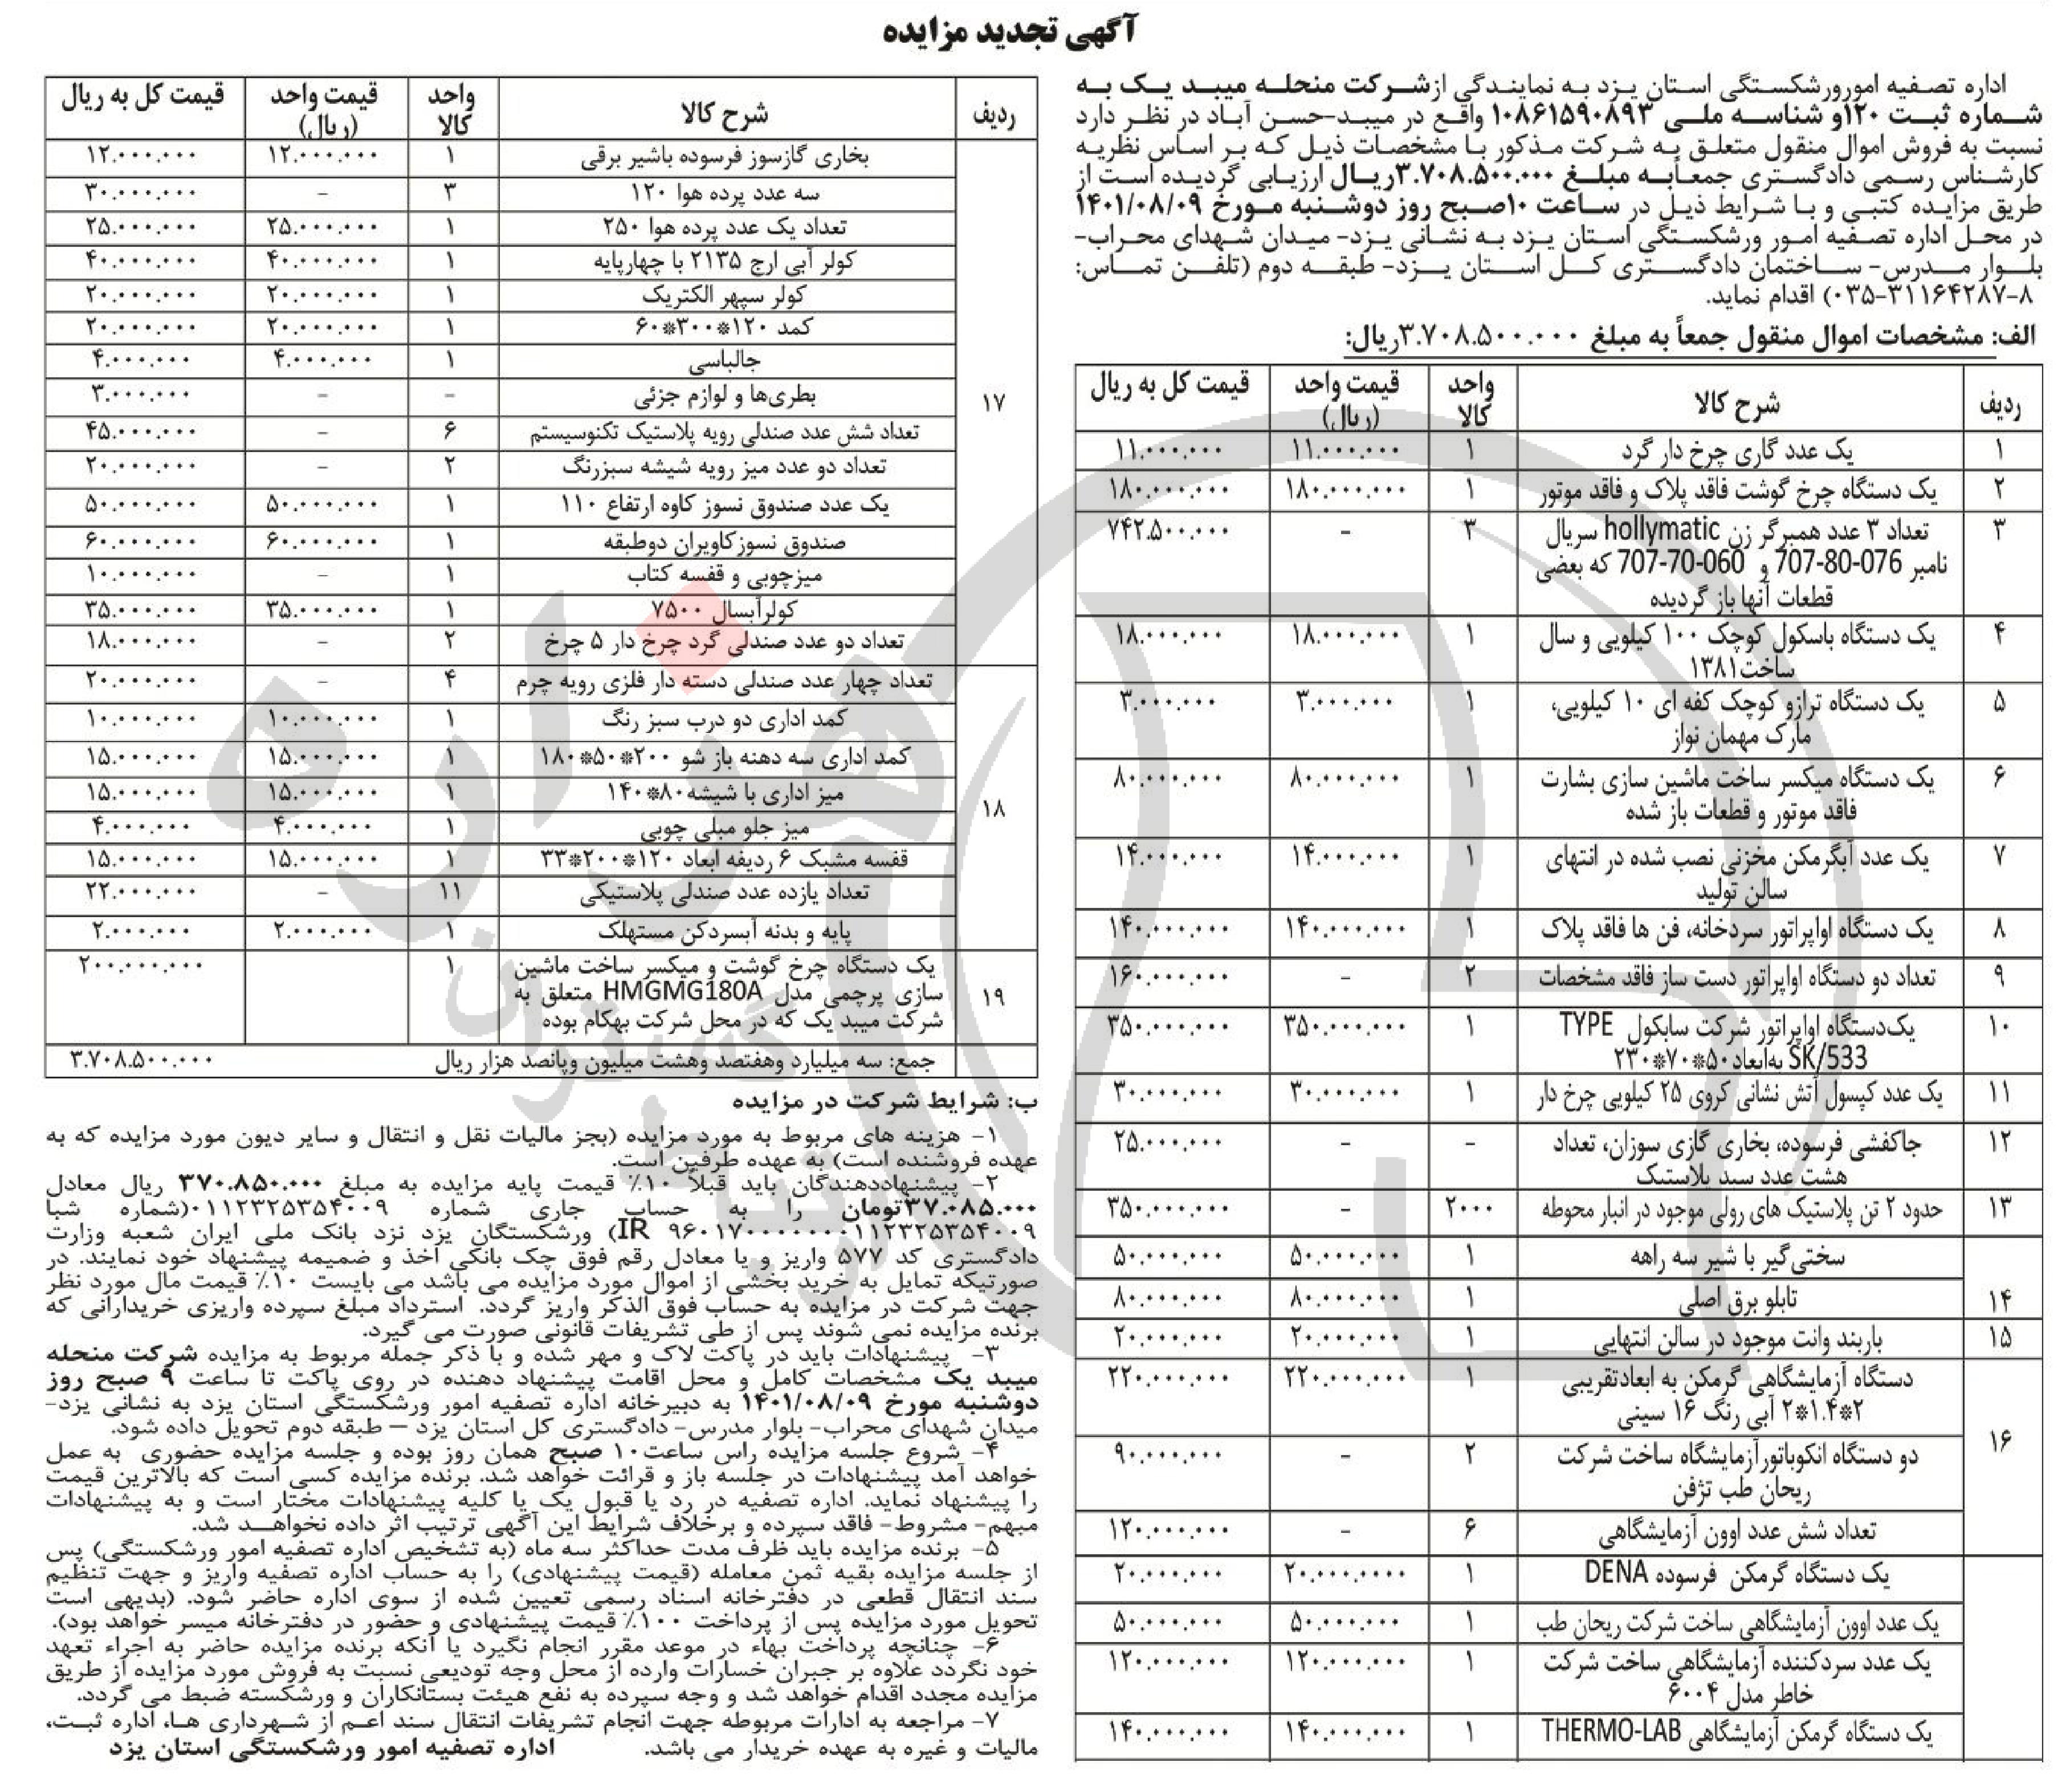 آگهی تجدید مزایده
اداره تصفیه امورورشکستگی استان یزد به نمایندگی ازشرکت منحله میبد یک به
شماره ثبت ۱۲۰و شناسه ملی ۱۰۸۶۱۵۹۰۸۹۳ واقع در میبد-حسن آباد در نظر دارد
نسبت به فروش اموال منقول متعلق به شرکت مذکور با مشخصات ذیل که بر اساس نظریه
کارشناس رسمی دادگستری جمعاًبه مبلغ ۳.۷۰۸.۵۰۰.۰۰۰ریال ارزیابی گردیده است از
طریق مزایده کتبی و با شرایط ذیل در ساعت ۱۰صبح روز دوشنبه مورخ ۱۴۰۱/۰۸/۰۹
در محل اداره تصفیه امور ورشکستگی استان یزد به نشانی یزد- میدان شهدای محراب-
بلوار مدرس- ساختمان دادگستری کل استان یزد- طبقه دوم (تلفن تماس:
۸-۳۱۱۶۴۲۸۷-۰۳۵) اقدام نماید.
الف: مشخصات اموال منقول جمعاً به مبلغ ۳.۷۰۸.۵۰۰.۰۰۰ریال:
ردیف شرح کالا واحد کالا قیمت واحد (ریال) قیمت کل به ریال
۱ یک عدد گاری چرخ دار گرد ۱ ۱۱.۰۰۰.۰۰۰ ۱۱.۰۰۰.۰۰۰
۲ یک دستگاه چرخ گوشت فاقد پلاک و فاقد موتور ۱ ۱۸۰.۰۰۰.۰۰۰ ۱۸۰.۰۰۰.۰۰۰
۳ تعداد ۳ عدد همبرگر زن hollymatic سریال ۳ - ۷۴۲.۵۰۰.۰۰۰
نامبر 707-80-076 و 707-70-060 که بعضی
قطعات آنها باز گردیده
۴ یک دستگاه باسکول کوچک ۱۰۰ کیلویی و سال ۱ ۱۸.۰۰۰.۰۰۰ ۱۸.۰۰۰.۰۰۰
ساخت۱۳۸۱
۵ یک دستگاه ترازو کوچک کفه ای ۱۰ کیلویی، ۱ ۳.۰۰۰.۰۰۰ ۳.۰۰۰.۰۰۰
مارک مهمان نواز
۶ یک دستگاه میکسر ساخت ماشین سازی بشارت ۱ ۸۰.۰۰۰.۰۰۰ ۸۰.۰۰۰.۰۰۰
فاقد موتور و قطعات باز شده
۷ یک عدد آبگرمکن مخزنی نصب شده در انتهای ۱ ۱۴.۰۰۰.۰۰۰ ۱۴.۰۰۰.۰۰۰
سالن تولید
۸ یک دستگاه اواپراتور سردخانه، فن ها فاقد پلاک ۱ ۱۴۰.۰۰۰.۰۰۰ ۱۴۰.۰۰۰.۰۰۰
۹ تعداد دو دستگاه اواپراتور دست ساز فاقد مشخصات ۲ - ۱۶۰.۰۰۰.۰۰۰
۱۰ یک‌دستگاه اواپراتور شرکت سابکول TYPE ۱ ۳۵۰.۰۰۰.۰۰۰ ۳۵۰.۰۰۰.۰۰۰
SK/533 به‌ابعاد۵۰*۷۰*۲۳۰
۱۱ یک عدد کپسول آتش نشانی کروی ۲۵ کیلویی چرخ دار ۱ ۳۰.۰۰۰.۰۰۰ ۳۰.۰۰۰.۰۰۰
۱۲ جاکفشی فرسوده، بخاری گازی سوزان، تعداد - - ۲۵.۰۰۰.۰۰۰
هشت عدد سبد پلاستیک
۱۳ حدود ۲ تن پلاستیک های رولی موجود در انبار محوطه ۲۰۰۰ - ۳۵۰.۰۰۰.۰۰۰
سختی‌گیر با شیر سه راهه ۱ ۵۰.۰۰۰.۰۰۰ ۵۰.۰۰۰.۰۰۰
۱۴ تابلو برق اصلی ۱ ۸۰.۰۰۰.۰۰۰ ۸۰.۰۰۰.۰۰۰
۱۵ باربند وانت موجود در سالن انتهایی ۱ ۲۰.۰۰۰.۰۰۰ ۲۰.۰۰۰.۰۰۰
دستگاه آزمایشگاهی گرمکن به ابعادتقریبی ۱ ۲۲۰.۰۰۰.۰۰۰ ۲۲۰.۰۰۰.۰۰۰
۲*۱.۴*۲ آبی رنگ ۱۶ سینی
۱۶ دو دستگاه انکوباتورآزمایشگاه ساخت شرکت ۲ - ۹۰.۰۰۰.۰۰۰
ریحان طب تژفن
تعداد شش عدد اوون آزمایشگاهی ۶ - ۱۲۰.۰۰۰.۰۰۰
یک دستگاه گرمکن فرسوده DENA ۱ ۲۰.۰۰۰.۰۰۰۰ ۲۰.۰۰۰.۰۰۰
یک عدد اوون آزمایشگاهی ساخت شرکت ریحان طب ۱ ۵۰.۰۰۰.۰۰۰ ۵۰.۰۰۰.۰۰۰
یک عدد سردکننده آزمایشگاهی ساخت شرکت ۱ ۱۲۰.۰۰۰.۰۰۰ ۱۲۰.۰۰۰.۰۰۰
خاطر مدل ۶۰۰۴
یک دستگاه گرمکن آزمایشگاهی THERMO-LAB ۱ ۱۴۰.۰۰۰.۰۰۰ ۱۴۰.۰۰۰.۰۰۰
ردیف شرح کالا واحد کالا قیمت واحد (ریال) قیمت کل به ریال
بخاری گازسوز فرسوده باشیر برقی ۱ ۱۲.۰۰۰.۰۰۰ ۱۲.۰۰۰.۰۰۰
سه عدد پرده هوا ۱۲۰ ۳ - ۳۰.۰۰۰.۰۰۰
تعداد یک عدد پرده هوا ۲۵۰ ۱ ۲۵.۰۰۰.۰۰۰ ۲۵.۰۰۰.۰۰۰
کولر آبی ارج ۲۱۳۵ با چهارپایه ۱ ۴۰.۰۰۰.۰۰۰ ۴۰.۰۰۰.۰۰۰
کولر سپهر الکتریک ۱ ۲۰.۰۰۰.۰۰۰ ۲۰.۰۰۰.۰۰۰
کمد ۱۲۰*۳۰۰*۶۰ ۱ ۲۰.۰۰۰.۰۰۰ ۲۰.۰۰۰.۰۰۰
جالباسی ۱ ۴.۰۰۰.۰۰۰ ۴.۰۰۰.۰۰۰
۱۷ بطری‌ها و لوازم جزئی - - ۳.۰۰۰.۰۰۰
تعداد شش عدد صندلی رویه پلاستیک تکنوسیستم ۶ - ۴۵.۰۰۰.۰۰۰
تعداد دو عدد میز رویه شیشه سبزرنگ ۲ - ۲۰.۰۰۰.۰۰۰
یک عدد صندوق نسوز کاوه ارتفاع ۱۱۰ ۱ ۵۰.۰۰۰.۰۰۰ ۵۰.۰۰۰.۰۰۰
صندوق نسوزکاویران دوطبقه ۱ ۶۰.۰۰۰.۰۰۰ ۶۰.۰۰۰.۰۰۰
میزچوبی و قفسه کتاب ۱ - ۱۰.۰۰۰.۰۰۰
کولرآبسال ۷۵۰۰ ۱ ۳۵.۰۰۰.۰۰۰ ۳۵.۰۰۰.۰۰۰
تعداد دو عدد صندلی گرد چرخ دار ۵ چرخ ۲ - ۱۸.۰۰۰.۰۰۰
تعداد چهار عدد صندلی دسته دار فلزی رویه چرم ۴ - ۲۰.۰۰۰.۰۰۰
کمد اداری دو درب سبز رنگ ۱ ۱۰.۰۰۰.۰۰۰ ۱۰.۰۰۰.۰۰۰
کمد اداری سه دهنه باز شو ۲۰۰*۵۰*۱۸۰ ۱ ۱۵.۰۰۰.۰۰۰ ۱۵.۰۰۰.۰۰۰
میز اداری با شیشه۸۰*۱۴۰ ۱ ۱۵.۰۰۰.۰۰۰ ۱۵.۰۰۰.۰۰۰
۱۸ میز جلو مبلی چوبی ۱ ۴.۰۰۰.۰۰۰ ۴.۰۰۰.۰۰۰
قفسه مشبک ۶ ردیفه ابعاد ۱۲۰*۲۰۰*۳۳ ۱ ۱۵.۰۰۰.۰۰۰ ۱۵.۰۰۰.۰۰۰
تعداد یازده عدد صندلی پلاستیکی ۱۱ - ۲۲.۰۰۰.۰۰۰
پایه و بدنه آبسردکن مستهلک ۱ ۲.۰۰۰.۰۰۰ ۲.۰۰۰.۰۰۰
۱۹ یک دستگاه چرخ گوشت و میکسر ساخت ماشین ۱ ۲۰۰.۰۰۰.۰۰۰
سازی پرچمی مدل HMGMG180A متعلق به
شرکت میبد یک که در محل شرکت بهکام بوده
جمع: سه میلیارد وهفتصد وهشت میلیون وپانصد هزار ریال ۳.۷۰۸.۵۰۰.۰۰۰
ب: شرایط شرکت در مزایده
۱- هزینه های مربوط به مورد مزایده (بجز مالیات نقل و انتقال و سایر دیون مورد مزایده که به
عهده فروشنده است) به عهده طرفین است.
۲- پیشنهاددهندگان باید قبلاً ۱۰٪ قیمت پایه مزایده به مبلغ ۳۷۰.۸۵۰.۰۰۰ ریال معادل
۳۷.۰۸۵.۰۰۰تومان را به حساب جاری شماره ۰۱۱۲۳۲۵۳۵۴۰۰۹(شماره شبا
IR ۹۶۰۱۷۰۰۰۰۰۰۰۱۱۲۳۲۵۳۵۴۰۰۹) ورشکستگان یزد نزد بانک ملی ایران شعبه وزارت
دادگستری کد ۵۷۷ واریز و یا معادل رقم فوق چک بانکی اخذ و ضمیمه پیشنهاد خود نمایند. در
صورتیکه تمایل به خرید بخشی از اموال مورد مزایده می باشد می بایست ۱۰٪ قیمت مال مورد نظر
جهت شرکت در مزایده به حساب فوق الذکر واریز گردد. استرداد مبلغ سپرده واریزی خریدارانی که
برنده مزایده نمی شوند پس از طی تشریفات قانونی صورت می گیرد.
۳- پیشنهادات باید در پاکت لاک و مهر شده و با ذکر جمله مربوط به مزایده شرکت منحله
میبد یک مشخصات کامل و محل اقامت پیشنهاد دهنده در روی پاکت تا ساعت ۹ صبح روز
دوشنبه مورخ ۱۴۰۱/۰۸/۰۹ به دبیرخانه اداره تصفیه امور ورشکستگی استان یزد به نشانی یزد-
میدان شهدای محراب- بلوار مدرس- دادگستری کل استان یزد – طبقه دوم تحویل داده شود.
۴- شروع جلسه مزایده راس ساعت۱۰ صبح همان روز بوده و جلسه مزایده حضوری به عمل
خواهد آمد پیشنهادات در جلسه باز و قرائت خواهد شد. برنده مزایده کسی است که بالاترین قیمت
را پیشنهاد نماید. اداره تصفیه در رد یا قبول یک یا کلیه پیشنهادات مختار است و به پیشنهادات
مبهم- مشروط- فاقد سپرده و برخلاف شرایط این آگهی ترتیب اثر داده نخواهد شد.
۵- برنده مزایده باید ظرف مدت حداکثر سه ماه (به تشخیص اداره تصفیه امور ورشکستگی) پس
از جلسه مزایده بقیه ثمن معامله (قیمت پیشنهادی) را به حساب اداره تصفیه واریز و جهت تنظیم
سند انتقال قطعی در دفترخانه اسناد رسمی تعیین شده از سوی اداره حاضر شود. (بدیهی است
تحویل مورد مزایده پس از پرداخت ۱۰۰٪ قیمت پیشنهادی و حضور در دفترخانه میسر خواهد بود).
۶- چنانچه پرداخت بهاء در موعد مقرر انجام نگیرد یا آنکه برنده مزایده حاضر به اجراء تعهد
خود نگردد علاوه بر جبران خسارات وارده از محل وجه تودیعی نسبت به فروش مورد مزایده از طریق
مزایده مجدد اقدام خواهد شد و وجه سپرده به نفع هیئت بستانکاران و ورشکسته ضبط می گردد.
۷- مراجعه به ادارات مربوطه جهت انجام تشریفات انتقال سند اعم از شهرداری ها، اداره ثبت،
مالیات و غیره به عهده خریدار می باشد. اداره تصفیه امور ورشکستگی استان یزد